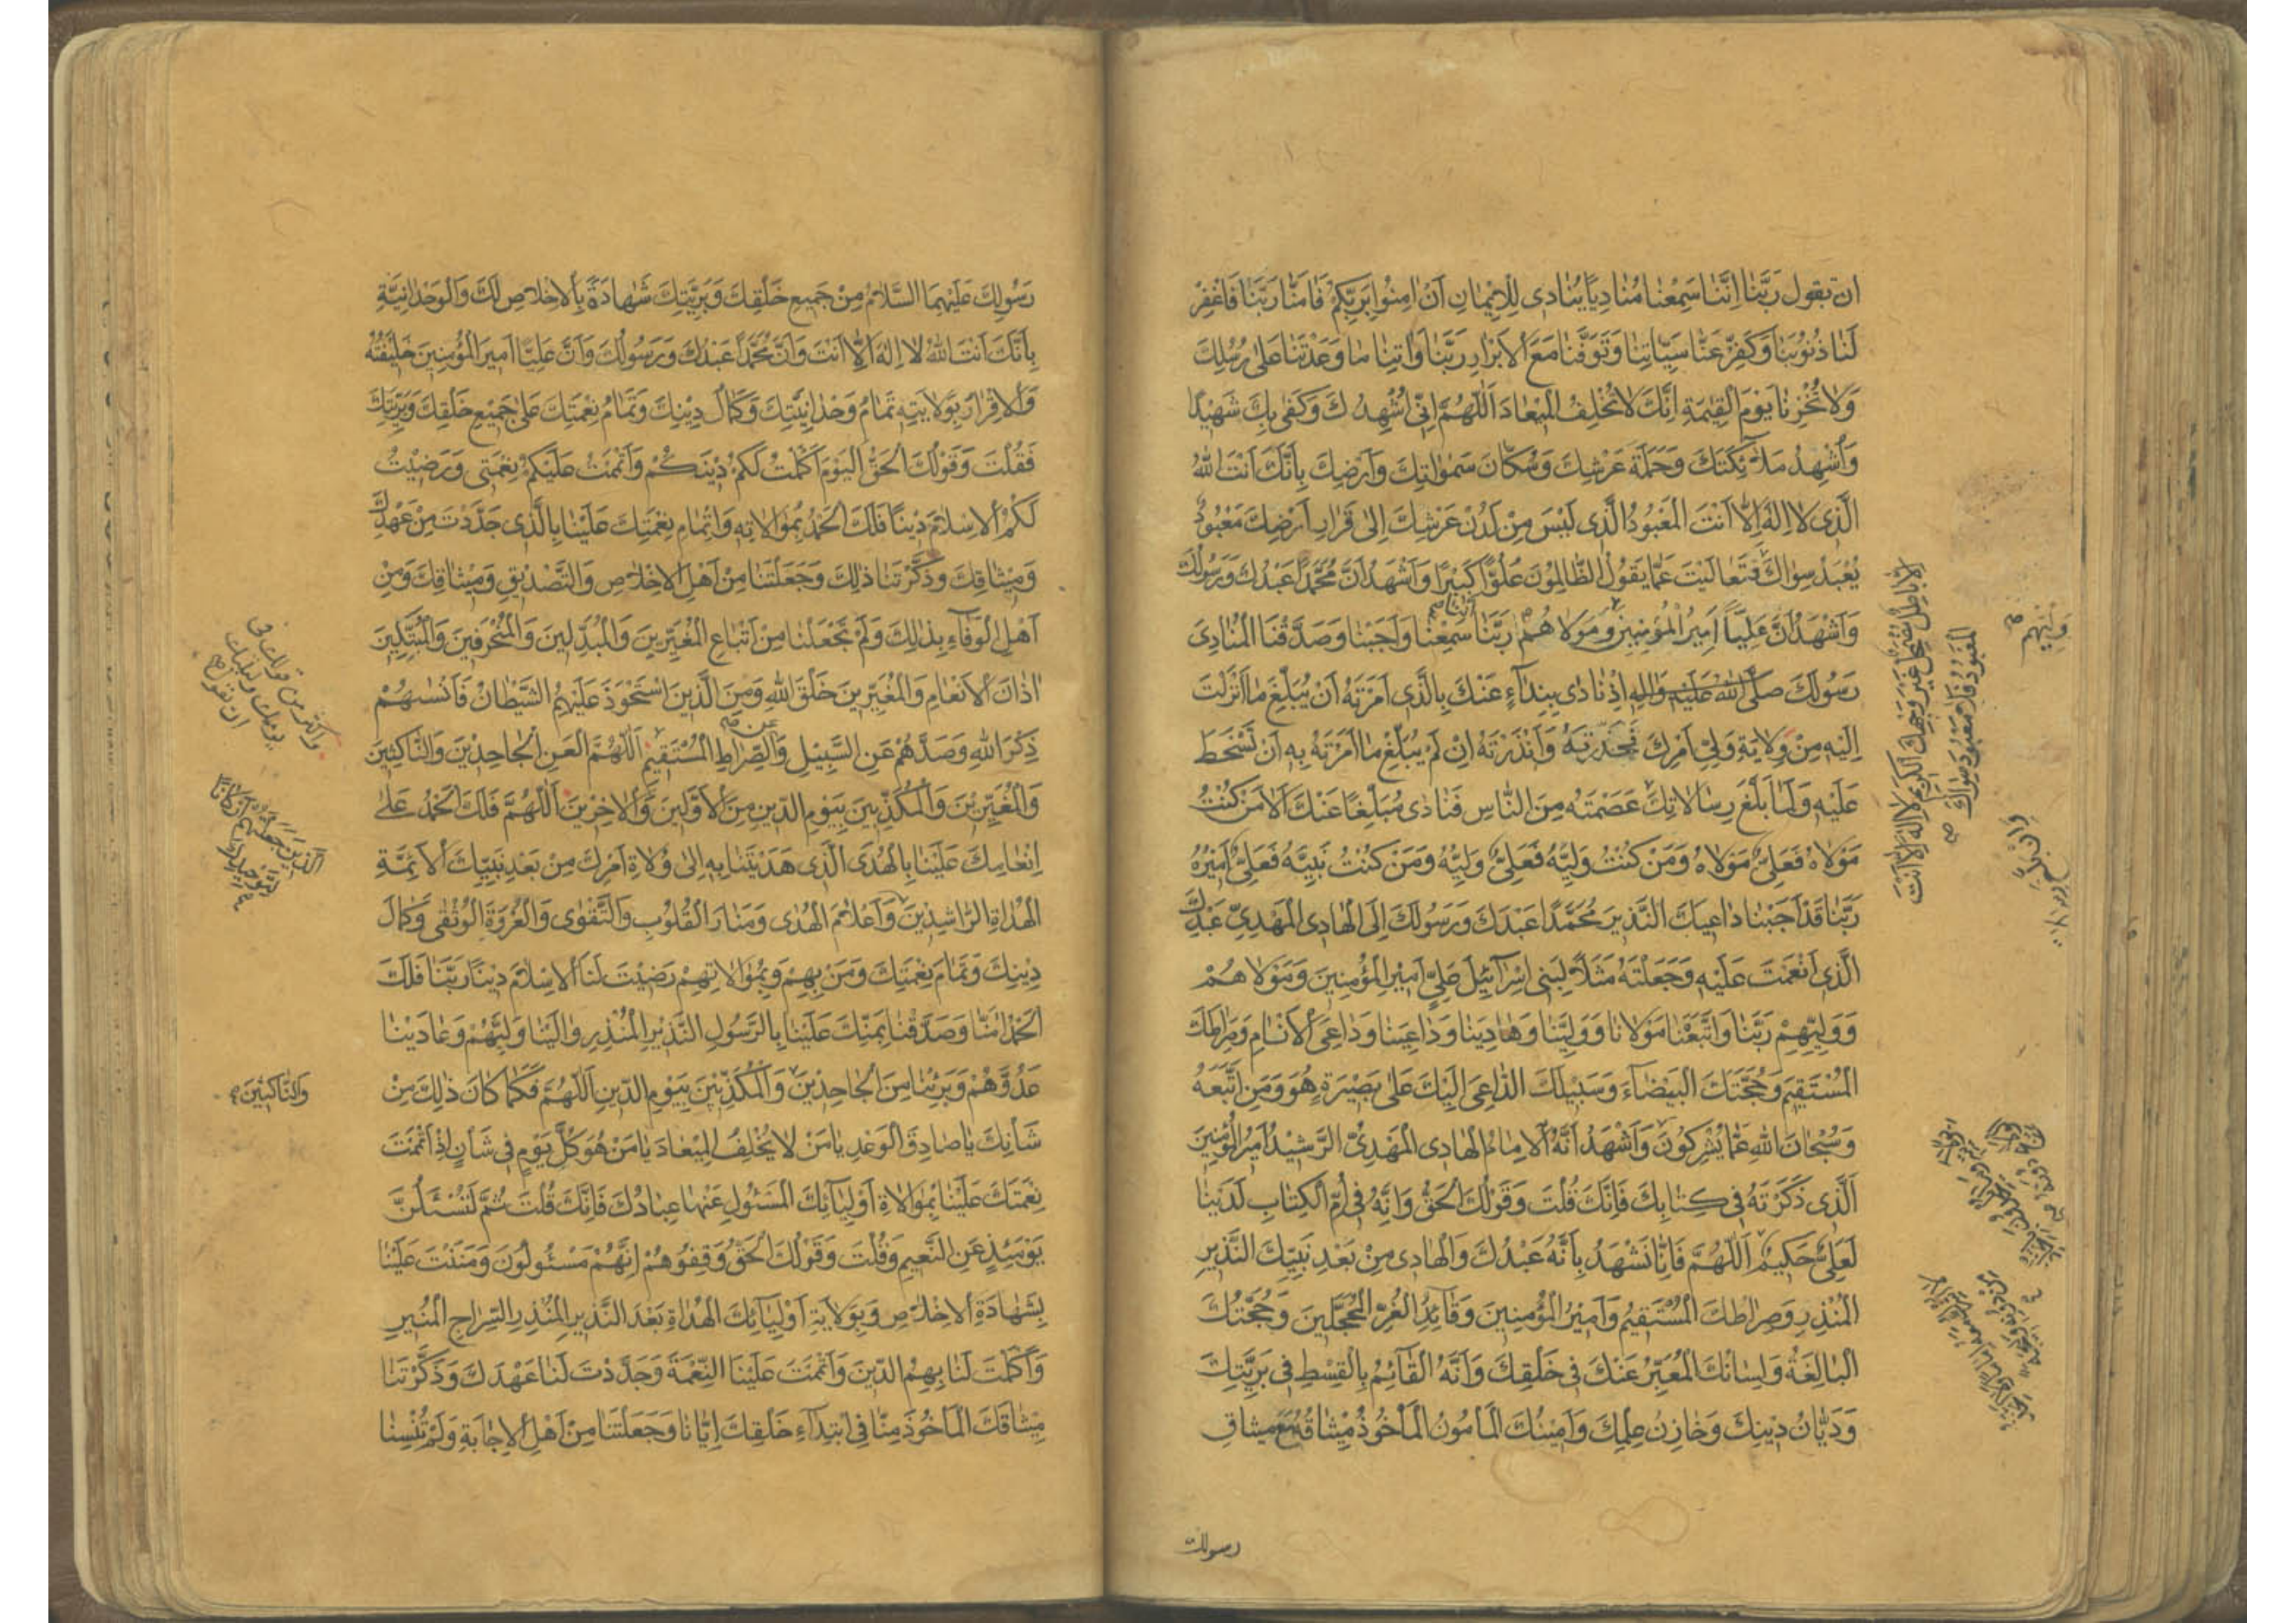 ان تقول رَبَّنا اِنَّنا سَمِعْنا مُنادِيًا يُنادى لِلْإِيْمانِ اَنْ اٰمِنُوْا بِرَبِّكُمْ فَاٰمَنَّا رَبَّنا فَاغْفِرْ
لَنا ذُنُوْبَنا وَكَفِّرْ عَنَّا سَيِّاٰتِنا وَتَوَفَّنا مَعَ الْاَبْرارِ رَبَّنا وَاٰتِنا ما وَعَدْتَنا عَلىٰ رُسُلِكَ
وَلا تُخْزِنا يَوْمَ الْقِيٰمَةِ اِنَّكَ لا تُخْلِفُ الْمِيْعادَ اَللّٰهُمَّ اِنّى اُشْهِدُكَ وَكَفى بِكَ شَهِيْدًا
وَاُشْهِدُ مَلآئِكَتَكَ وَحَمَلَةَ عَرْشِكَ وَسُكّانَ سَمٰواتِكَ وَاَرْضِكَ بِاَنَّكَ اَنْتَ اللّٰهُ
الَّذى لا اِلٰهَ اِلّا اَنْتَ الْمَعْبُوْدُ الَّذى لَيْسَ مِنْ لَدُنْ عَرْشِكَ اِلىٰ قَرارِ اَرْضِكَ مَعْبُوْدٌ
يُعْبَدُ سِواكَ فَتَعالَيْتَ عَمّا يَقُوْلُ الظّالِمُوْنَ عُلُوًّا كَبِيْرًا وَاَشْهَدُ اَنَّ مُحَمَّدًا عَبْدُكَ وَرَسُوْلُكَ
وَاَشْهَدُ اَنَّ عَلِيًّا اَمِيْرُ الْمُؤْمِنِيْنَ وَمَوْلاهُمْ رَبَّنا سَمِعْنا وَاَجَبْنا وَصَدَّقْنَا الْمُنادِىَ
رَسُوْلَكَ صَلَّى اللّٰهُ عَلَيْهِ وَاٰلِهِ اِذْ نادى بِنِدآءٍ عَنْكَ بِالَّذى اَمَرْتَهُ اَنْ يُبَلِّغَ ما اَنْزَلْتَ
اِلَيْهِ مِنْ وِلايَةِ وَلِىِّ اَمْرِكَ فَحَذَّرْتَهُ وَاَنْذَرْتَهُ اِنْ لَمْ يُبَلِّغْ ما اَمَرْتَهُ بِهِ اَنْ تَسْخَطَ
عَلَيْهِ وَلَمّا بَلَّغَ رِسالاتِكَ عَصَمْتَهُ مِنَ النّاسِ فَنادى مُبَلِّغًا عَنْكَ اَلا مَنْ كُنْتُ
مَوْلاهُ فَعَلِىٌّ مَوْلاهُ وَمَنْ كُنْتُ وَلِيَّهُ فَعَلِىٌّ وَلِيُّهُ وَمَنْ كُنْتُ نَبِيَّهُ فَعَلِىٌّ اَمِيْرُهُ
رَبَّنا قَدْ اَجَبْنا داعِيَكَ النَّذِيْرَ مُحَمَّدًا عَبْدَكَ وَرَسُوْلَكَ اِلَى الْهادِى الْمَهْدِىِّ عَبْدِكَ
الَّذى اَنْعَمْتَ عَلَيْهِ وَجَعَلْتَهُ مَثَلًا لِبَنى اِسْرآئِيْلَ عَلِىٍّ اَمِيْرِ الْمُؤْمِنِيْنَ وَمَوْلاهُمْ
وَوَلِيِّهِمْ رَبَّنا وَاتَّبَعْنا مَوْلانا وَوَلِيَّنا وَهادِيَنا وَداعِيَنا وَداعِىَ الْاَنامِ وَصِراطَكَ
الْمُسْتَقِيْمَ وَحُجَّتَكَ الْبَيْضآءَ وَسَبِيْلَكَ الدّاعِىَ اِلَيْكَ عَلىٰ بَصِيْرَةٍ هُوَ وَمَنِ اتَّبَعَهُ
وَسُبْحانَ اللّٰهِ عَمّا يُشْرِكُوْنَ وَاَشْهَدُ اَنَّهُ الْاِمامُ الْهادِى الْمَهْدِىُّ الرَّشِيْدُ اَمِيْرُ الْمُؤْمِنِيْنَ
الَّذى ذَكَرْتَهُ فى كِتابِكَ فَاِنَّكَ قُلْتَ وَقَوْلُكَ الْحَقُّ وَاِنَّهُ فى اُمِّ الْكِتابِ لَدَيْنا
لَعَلِىٌّ حَكِيْمٌ اَللّٰهُمَّ فَاِنّا نَشْهَدُ بِاَنَّهُ عَبْدُكَ وَالْهادى مِنْ بَعْدِ نَبِيِّكَ النَّذِيْرِ
الْمُنْذِرِ وَصِراطُكَ الْمُسْتَقِيْمُ وَاَمِيْرُ الْمُؤْمِنِيْنَ وَقآئِدُ الْغُرِّ الْمُحَجَّلِيْنَ وَحُجَّتُكَ
الْبالِغَةُ وَلِسانُكَ الْمُعَبِّرُ عَنْكَ فى خَلْقِكَ وَاَنَّهُ الْقآئِمُ بِالْقِسْطِ فى بَرِيَّتِكَ
وَدَيّانُ دِيْنِكَ وَخازِنُ عِلْمِكَ وَاَمِيْنُكَ الْمَاْمُوْنُ الْمَاْخُوْذُ مِيْثاقُهُ مَعَ مِيثاقِ
رسولك
الْاَباطِلُ مُضْمَحِلٌّ غَيْرَ وَجْهِكَ الْكَرِيْمِ لا اِلٰهَ اِلّا اَنْتَ
الْمَعْبُوْدُ فَلا مَعْبُوْدَ سِواكَ
وَلِيُّهُمْ
رَسُوْلِكَ عَلَيْهِمَا السَّلامُ مِنْ جَمِيْعِ خَلْقِكَ وَبَرِيَّتِكَ شَهادَةً بِالْاِخْلاصِ لَكَ وَالْوَحْدانِيَّةِ
بِاَنَّكَ اَنْتَ اللّٰهُ لا اِلٰهَ اِلّا اَنْتَ وَاَنَّ مُحَمَّدًا عَبْدُكَ وَرَسُوْلُكَ وَاَنَّ عَلِيًّا اَمِيْرَ الْمُؤْمِنِيْنَ خَلِيْفَتُهُ
وَالْاِقْرارَ بِوَلايَتِهِ تَمامُ وَحْدانِيَّتِكَ وَكَمالُ دِيْنِكَ وَتَمامُ نِعْمَتِكَ عَلىٰ جَمِيْعِ خَلْقِكَ وَبَرِيَّتِكَ
فَقُلْتَ وَقَوْلُكَ الْحَقُّ اَلْيَوْمَ اَكْمَلْتُ لَكُمْ دِيْنَكُمْ وَاَتْمَمْتُ عَلَيْكُمْ نِعْمَتى وَرَضِيْتُ
لَكُمُ الْاِسْلامَ دِيْنًا فَلَكَ الْحَمْدُ بِمُوالاتِهِ وَاِتْمامِ نِعْمَتِكَ عَلَيْنا بِالَّذى جَدَّدْتَ مِنْ عَهْدِكَ
وَمِيْثاقِكَ وَذَكَّرْتَنا ذٰلِكَ وَجَعَلْتَنا مِنْ اَهْلِ الْاِخْلاصِ وَالتَّصْدِيْقِ وَمِيْثاقِكَ وَمِنْ
اَهْلِ الْوَفآءِ بِذٰلِكَ وَلَمْ تَجْعَلْنا مِنْ اَتْباعِ الْمُغَيِّرِيْنَ وَالْمُبَدِّلِيْنَ وَالْمُنْحَرِفِيْنَ وَالْمُبَتِّكِيْنَ
اٰذانَ الْاَنْعامِ وَالْمُغَيِّرِيْنَ خَلْقَ اللّٰهِ وَمِنَ الَّذِيْنَ اسْتَحْوَذَ عَلَيْهِمُ الشَّيْطانُ فَاَنْسٰهُمْ
ذِكْرَ اللّٰهِ وَصَدَّهُمْ عَنِ السَّبِيْلِ وَالصِّراطِ الْمُسْتَقِيْمِ اَللّٰهُمَّ الْعَنِ الْجاحِدِيْنَ وَالنّاكِثِيْنَ
وَالْمُغَيِّرِيْنَ وَالْمُكَذِّبِيْنَ بِيَوْمِ الدِّيْنِ مِنَ الْاَوَّلِيْنَ وَالْاٰخِرِيْنَ اَللّٰهُمَّ فَلَكَ الْحَمْدُ عَلىٰ
اِنْعامِكَ عَلَيْنا بِالْهُدَى الَّذى هَدَيْتَنا بِهِ اِلىٰ وُلاةِ اَمْرِكَ مِنْ بَعْدِ نَبِيِّكَ الْاَئِمَّةِ
الْهُداةِ الرّاشِدِيْنَ وَاَعْلامِ الْهُدى وَمَنارِ الْقُلُوْبِ وَالتَّقْوى وَالْعُرْوَةِ الْوُثْقى وَكَمالِ
دِيْنِكَ وَتَمامِ نِعْمَتِكَ وَمَنْ بِهِمْ وَبِمُوالاتِهِمْ رَضِيْتَ لَنَا الْاِسْلامَ دِيْنًا رَبَّنا فَلَكَ
الْحَمْدُ اٰمَنّا وَصَدَّقْنا بِمَنِّكَ عَلَيْنا بِالرَّسُوْلِ النَّذِيْرِ الْمُنْذِرِ والَيْنا وَلِيَّهُمْ وَعادَيْنا
عَدُوَّهُمْ وَبَرِئْنا مِنَ الْجاحِدِيْنَ وَالْمُكَذِّبِيْنَ بِيَوْمِ الدِّيْنِ اَللّٰهُمَّ فَكَما كانَ ذٰلِكَ مِنْ
شَأْنِكَ يا صادِقَ الْوَعْدِ يا مَنْ لا يُخْلِفُ الْمِيْعادَ يا مَنْ هُوَ كُلَّ يَوْمٍ فى شَأْنٍ اِذْ اَتْمَمْتَ
نِعْمَتَكَ عَلَيْنا بِمُوالاةِ اَوْلِيآئِكَ الْمَسْئُوْلِ عَنْها عِبادُكَ فَاِنَّكَ قُلْتَ ثُمَّ لَتُسْئَلُنَّ
يَوْمَئِذٍ عَنِ النَّعِيْمِ وَقُلْتَ وَقَوْلُكَ الْحَقُّ وَقِفُوْهُمْ اِنَّهُمْ مَسْئُولُوْنَ وَمَنَنْتَ عَلَيْنا
بِشَهادَةِ الْاِخْلاصِ وَبِوَلايَةِ اَوْلِيآئِكَ الْهُداةِ بَعْدَ النَّذِيْرِ الْمُنْذِرِ السِّراجِ الْمُنِيْرِ
وَاَكْمَلْتَ لَنا بِهِمُ الدِّيْنَ وَاَتْمَمْتَ عَلَيْنَا النِّعْمَةَ وَجَدَّدْتَ لَنا عَهْدَكَ وَذَكَّرْتَنا
مِيْثاقَكَ الْمَاْخُوْذَ مِنّا فِى ابْتِدآءِ خَلْقِكَ اِيّانا وَجَعَلْتَنا مِنْ اَهْلِ الْاِجابَةِ وَلَمْ تُنْسِنا
وَالنّاكِبِيْنَ